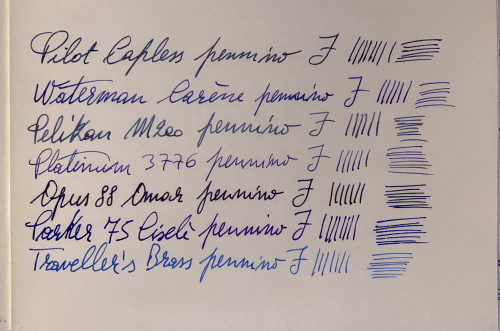 Pilot Capless pennino F
Waterman Carène pennino F
Pelikan M200 pennino F
Platinium 3776 pennino F
Opus 88 Omar pennino F
Parker 75 Ciselè pennino F
Traveller's Brass pennino F